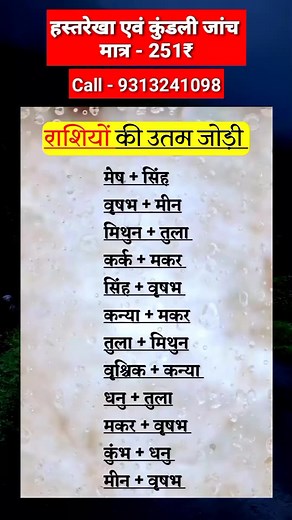 हस्तरेखा एवं कुंडली जांच
मात्र - 251₹
Call - 9313241098
राशियों की उतम जोड़ी
मेष + सिंह
वृषभ + मीन
मिथुन + तुला
कर्क + मकर
सिंह + वृषभ
कन्या + मकर
तुला + मिथुन
वृश्चिक + कन्या
धनु + तुला
मकर + वृषभ
कुंभ + धनु
मीन + वृषभ